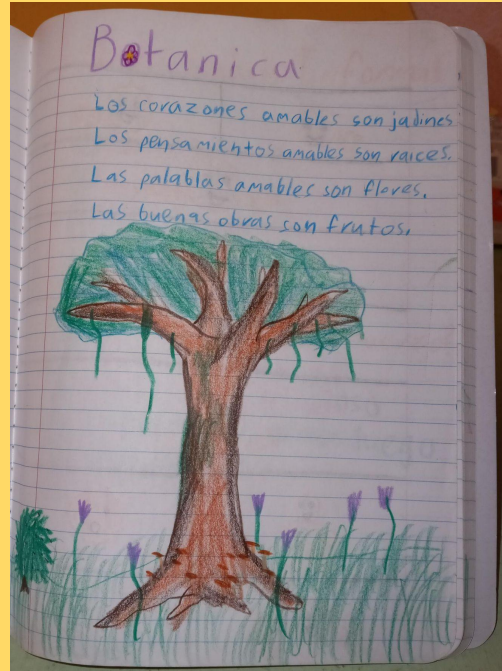 Botanica
Los corazones amables son jadines
Los pensamientos amables son raices.
Las palablas amables son flores.
Las buenas obras son frutos.